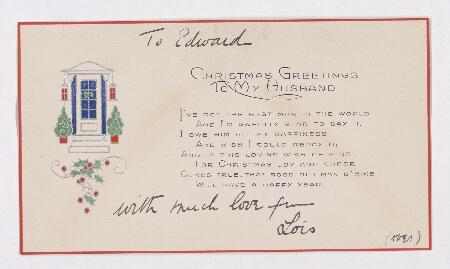 To Edward
CHRISTMAS GREETINGS
TO MY HUSBAND
I'VE GOT THE BEST MAN IN THE WORLD
AND I'M AWFULLY GLAD TO SAY IT,
I OWE HIM ALL MY HAPPINESS
AND WISH I COULD REPAY IT;
AND IF THIS LOVING WISH OF MINE
FOR CHRISTMAS JOY AND CHEER
COMES TRUE, THAT GOOD OLD MAN O' MINE
WILL HAVE A HAPPY YEAR.
with much love from
Lois
(over)